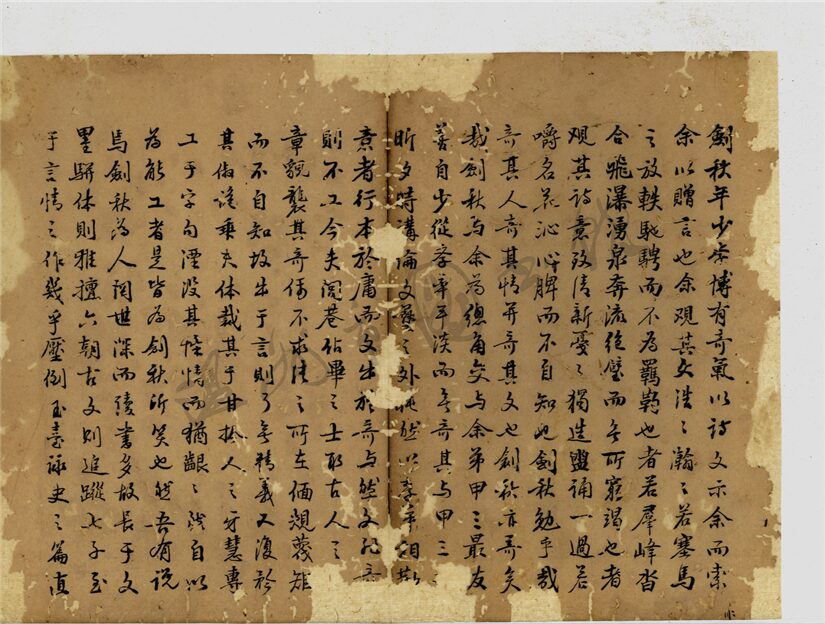 劍秋年少学博有奇氣以詩文示余而索
余以贈言也余观其文浩〻瀚〻若塞馬
之放軼馳騁而不为羁羁也者若羣峰沓
合飛瀑湧泉奔流絶壁而无所窮竭也者
观其詩意致清新憂〻獨造盥诵一過若
嚼名花沁心脾而不自知也劍秋勉乎哉
奇其人奇其情并奇其文也劍秋亦奇矣
哉劍秋与余为總角交与余弟甲三最友
善自少從容平淡而无奇其与甲三
昕夕時講論文藝之外
意者行本於庸而文出於奇与然文非奇
則不工今夫闾巷佔畢之士取古人之
章貌襲其奇傷不求法之所在偭規蔑矩
而不自知故出于言則了无精義又復於
其俶詭乖夫体裁其于甘拾人之牙慧專
工于字句湮没其性情而犹龈〻然自以
为能工者是皆为劍秋所笑也然吾有说
焉劍秋为人阅世深而读書多故長于文
墨駢体則雅擅六朝古文則追蹤七子至
于言情之作幾乎壓倒玉臺詠史之篇直